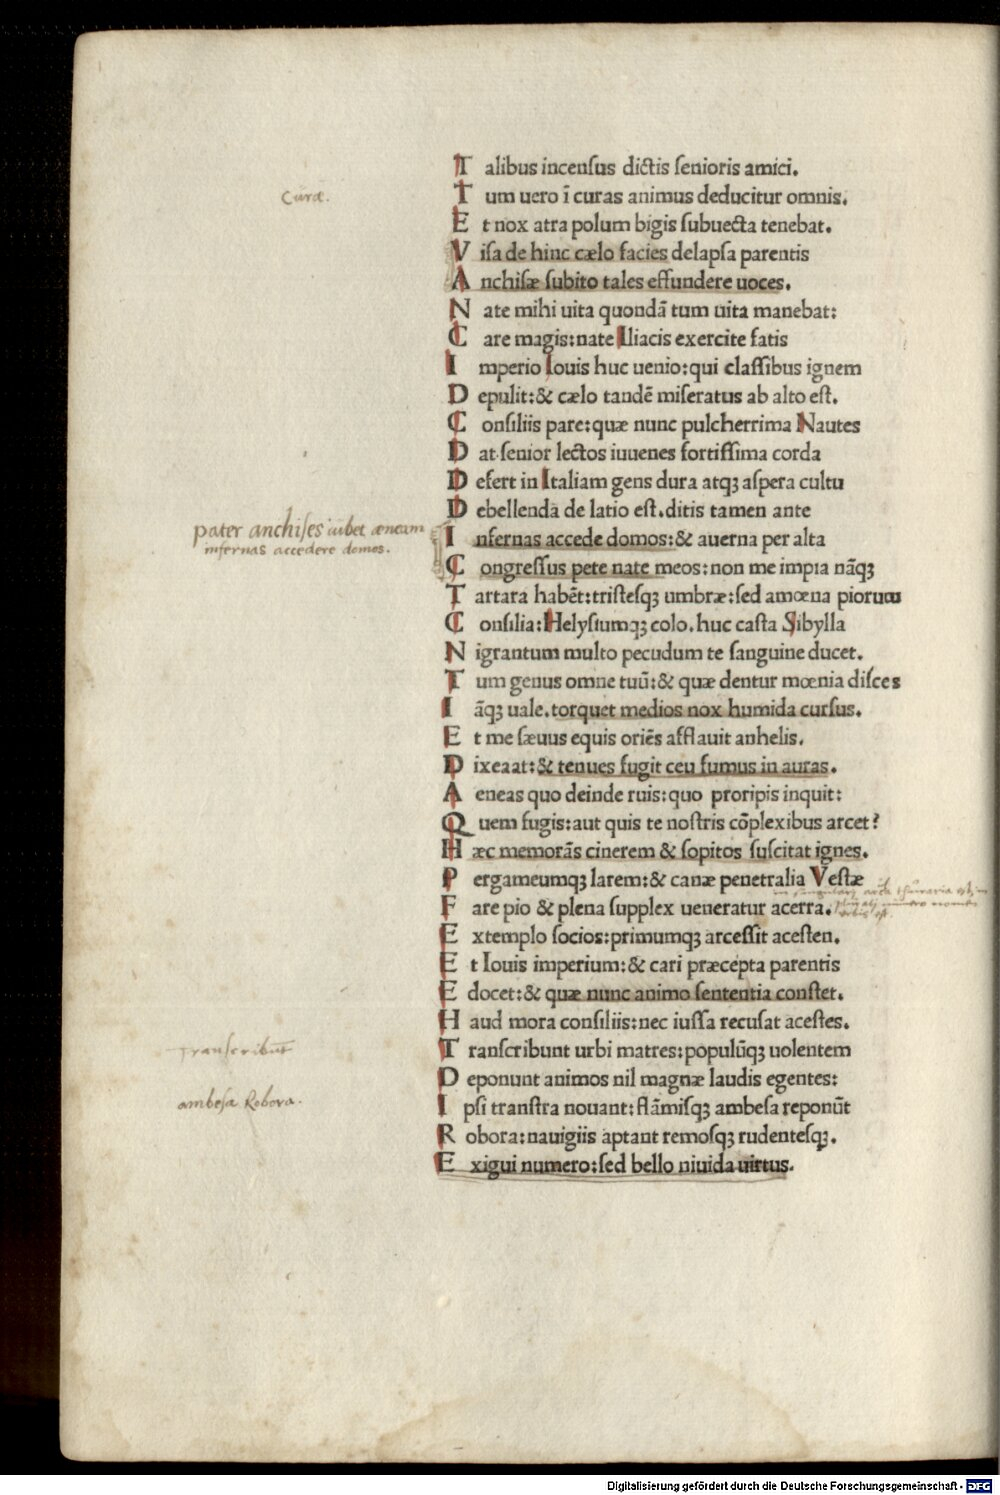 T alibus incensus dictis senioris amici.
T um uero ĩ curas animus deducitur omnis.
Curæ.
E t nox atra polum bigis subuecta tenebat.
V isa de hinc cælo facies delapsa parentis
A nchisæ subito tales effundere uoces.
N ate mihi uita quondã tum uita manebat:
C are magis:nate Iliacis exercite fatis
I mperio Iouis huc uenio:qui classibus ignem
D epulit:& cælo tandẽ miseratus ab alto est.
C onsiliis pare:quæ nunc pulcherrima Nautes
D at.senior lectos iuuenes fortissima corda
D efert in Italiam gens dura atqꝫ aspera cultu
D ebellenda de latio est.ditis tamen ante
pater anchises iubet æneam
infernas accedere domos.
I nfernas accede domos:& auerna per alta
C ongressus pete nate meos:non me impia nãqꝫ
T artara habẽt:tristesqꝫ umbræ:sed amœna piorum
C onsilia:Helysiumqꝫ colo.huc casta Sibylla
N igrantum multo pecudum te sanguine ducet.
T um genus omne tuũ:& quæ dentur mœnia disces
I ãqꝫ uale.torquet medios nox humida cursus.
E t me sæuus equis oriẽs afflauit anhelis.
D ixeaat:& tenues fugit ceu fumus in auras.
A eneas quo deinde ruis:quo proripis inquit:
Q uem fugis:aut quis te nostris cõplexibus arcet?
H æc memorãs cinerem & sopitos suscitat ignes.
P ergameumqꝫ larem:& canæ penetralia Vestæ
F are pio & plena supplex ueneratur acerra.
E xtemplo socios:primumqꝫ arcessit acesten.
E t Iouis imperium:& cari præcepta parentis
E docet:& quæ nunc animo sententia constet.
H aud mora consiliis:nec iussa recusat acestes.
Transcribũt
T ranscribunt urbi matres:populũqꝫ uolentem
D eponunt animos nil magnæ laudis egentes:
ambesa Robora.
I psi transtra nouant:flãmisqꝫ ambesa reponũt
R obora:nauigiis aptant remosqꝫ rudentesqꝫ.
E xigui numero:sed bello niuida uirtus.
Digitalisierung gefördert durch die Deutsche Forschungsgemeinschaft - DFG